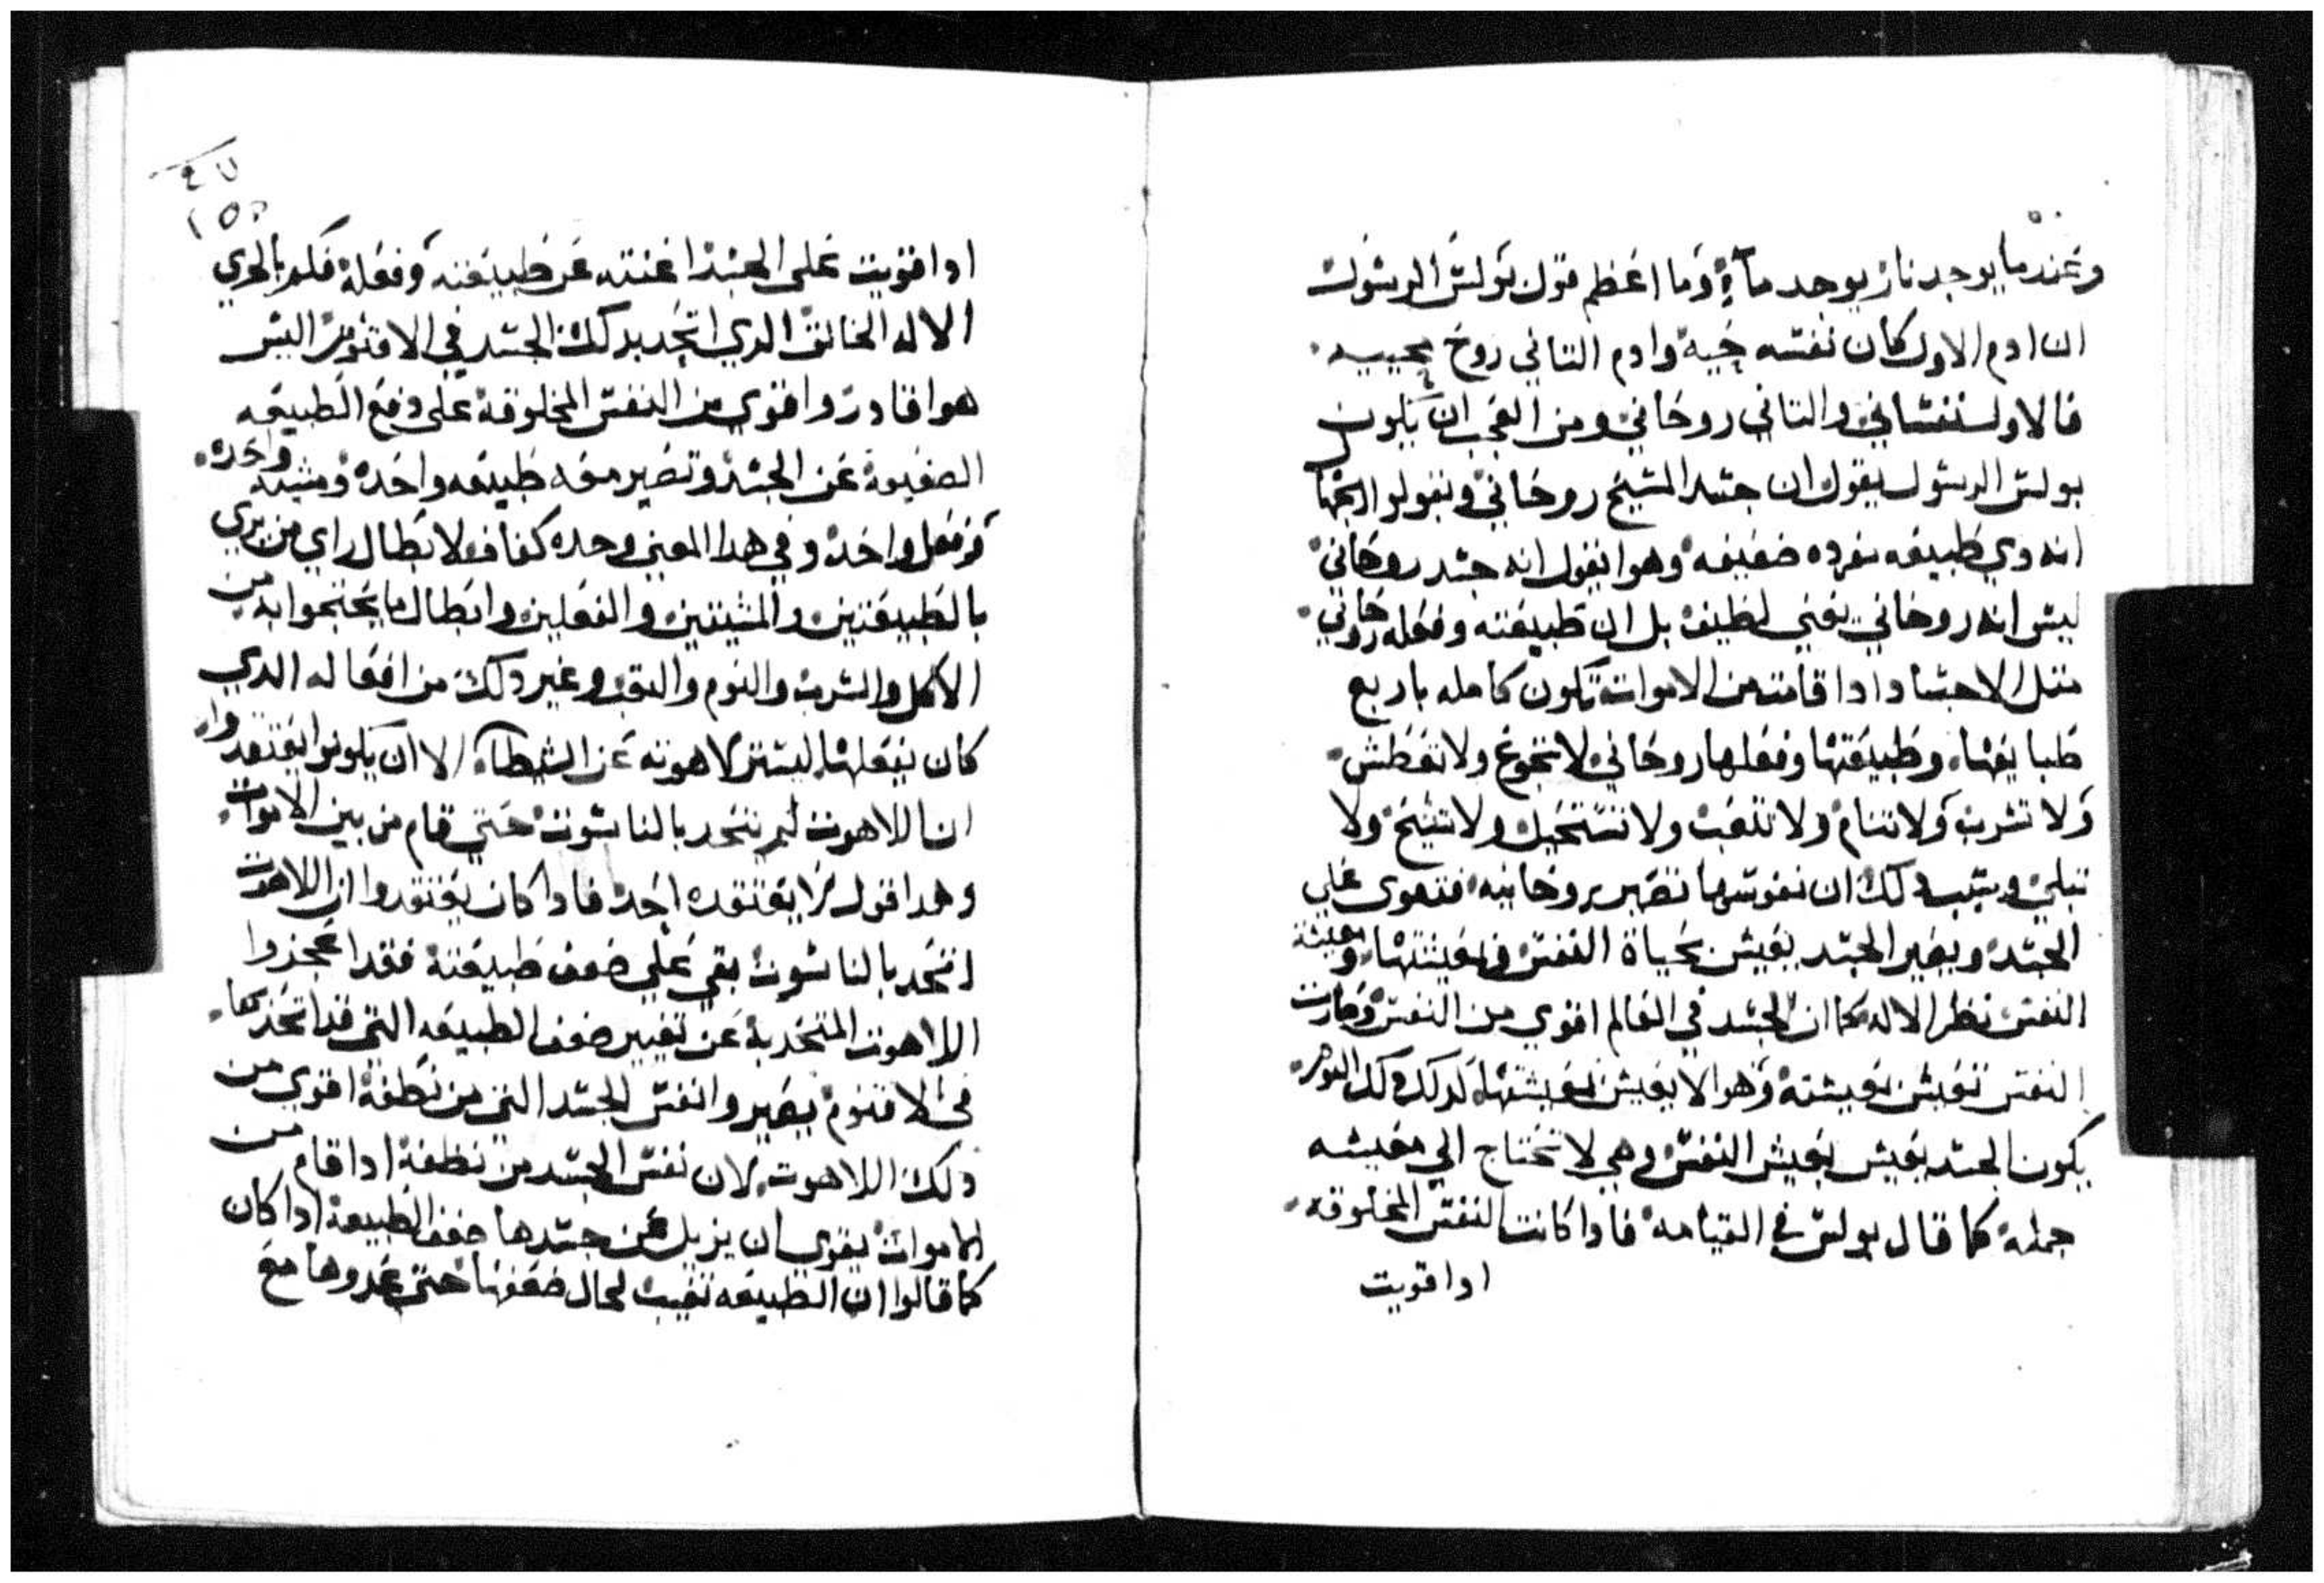 وعندما يوجد نار يوجد مآء وما اعظم قول بولس الرسول
ان ادم الاول كان نفسه حيه وادم التاني روح محييه
فالاول نفساني والتاني روحاني ومن العجب ان يكون
بولس الرسول يقول ان جسد المسيح روحاني ويقولو
انه دي طبيعه مفرده ضعيفه وهوا يقول انه جسد روحاني
ليس انه روحاني يعني لطيف بل ان طبيعته وفعله روحاني
متل الاجساد ادا قامت من الاموات تكون كامله باربع
طبايعها وطبيعتها وفعلها روحاني لا تجوع ولا تعطش
ولا تشرب ولا تنام ولا تتعب ولا تستحيل ولا تشيخ ولا
تبلي وسبب دلك ان نفوسها تصير روحانيه فتقوى علي
الجسد ويصير الجسد يعيش بحياة النفس ومعيشتها ومعيشة
النفس نظر الاله كما ان الجسد في العالم اقوي من النفس وصارت
النفس تعيش بمعيشته وهوا لا يعيش بمعيشتها كدلك دلك اليوم
يكون الجسد يعيش بعيش النفس وهي لا تحتاج الي معيشه
جمله كما قال بولس في القيامه فادا كانت النفس المخلوقه
ادا قويت
٤٧
١٥٥
ادا قويت علي الجسد اغنته عن طبيعته وفعله فكم بالحري
الاله الخالق الدي اتحد بدلك الجسد في الاقنوم اليس
هوا قادر واقوي من النفس المخلوقة علي دفع الطبيعه
الضعيفة عن الجسد وتصير معه طبيعه واحده ومشيه واحده
وفعل واحده وفي هدا المعني وحده كفاف لابطال راي من يري
بالطبيعتين والمشيتين والفعلين وابطال ما يحتجوا به من
الاكل والشرب والنوم والتعب وغير دلك من افعاله الدي
كان يفعلها ليستر لاهوته عن الشيطان الا ان يكونوا يعتقدوا
ان اللاهوت لم يتحد بالناسوت حتي قام من بين الاموات
وهدا قول لا يعتقده احد فادا كان يعتقدوا ان اللاهوت
اتحد بالناسوت بقي علي ضعف طبيعته فقد اعجزوا
اللاهوت المتحد به عن تغيير ضعف الطبيعه التي قد اتحد بها
في الاقنوم بصير وانفس الجسد التي من نطفة اقوي من
دلك اللاهوت لان نفس الجسد من نطفة ادا قام من
الاموات يقوي ان يزيل عن جسدها ضعف الطبيعة ادا كان
كما قالوا ان الطبيعه تغيب لحال ضعفها حتي مع